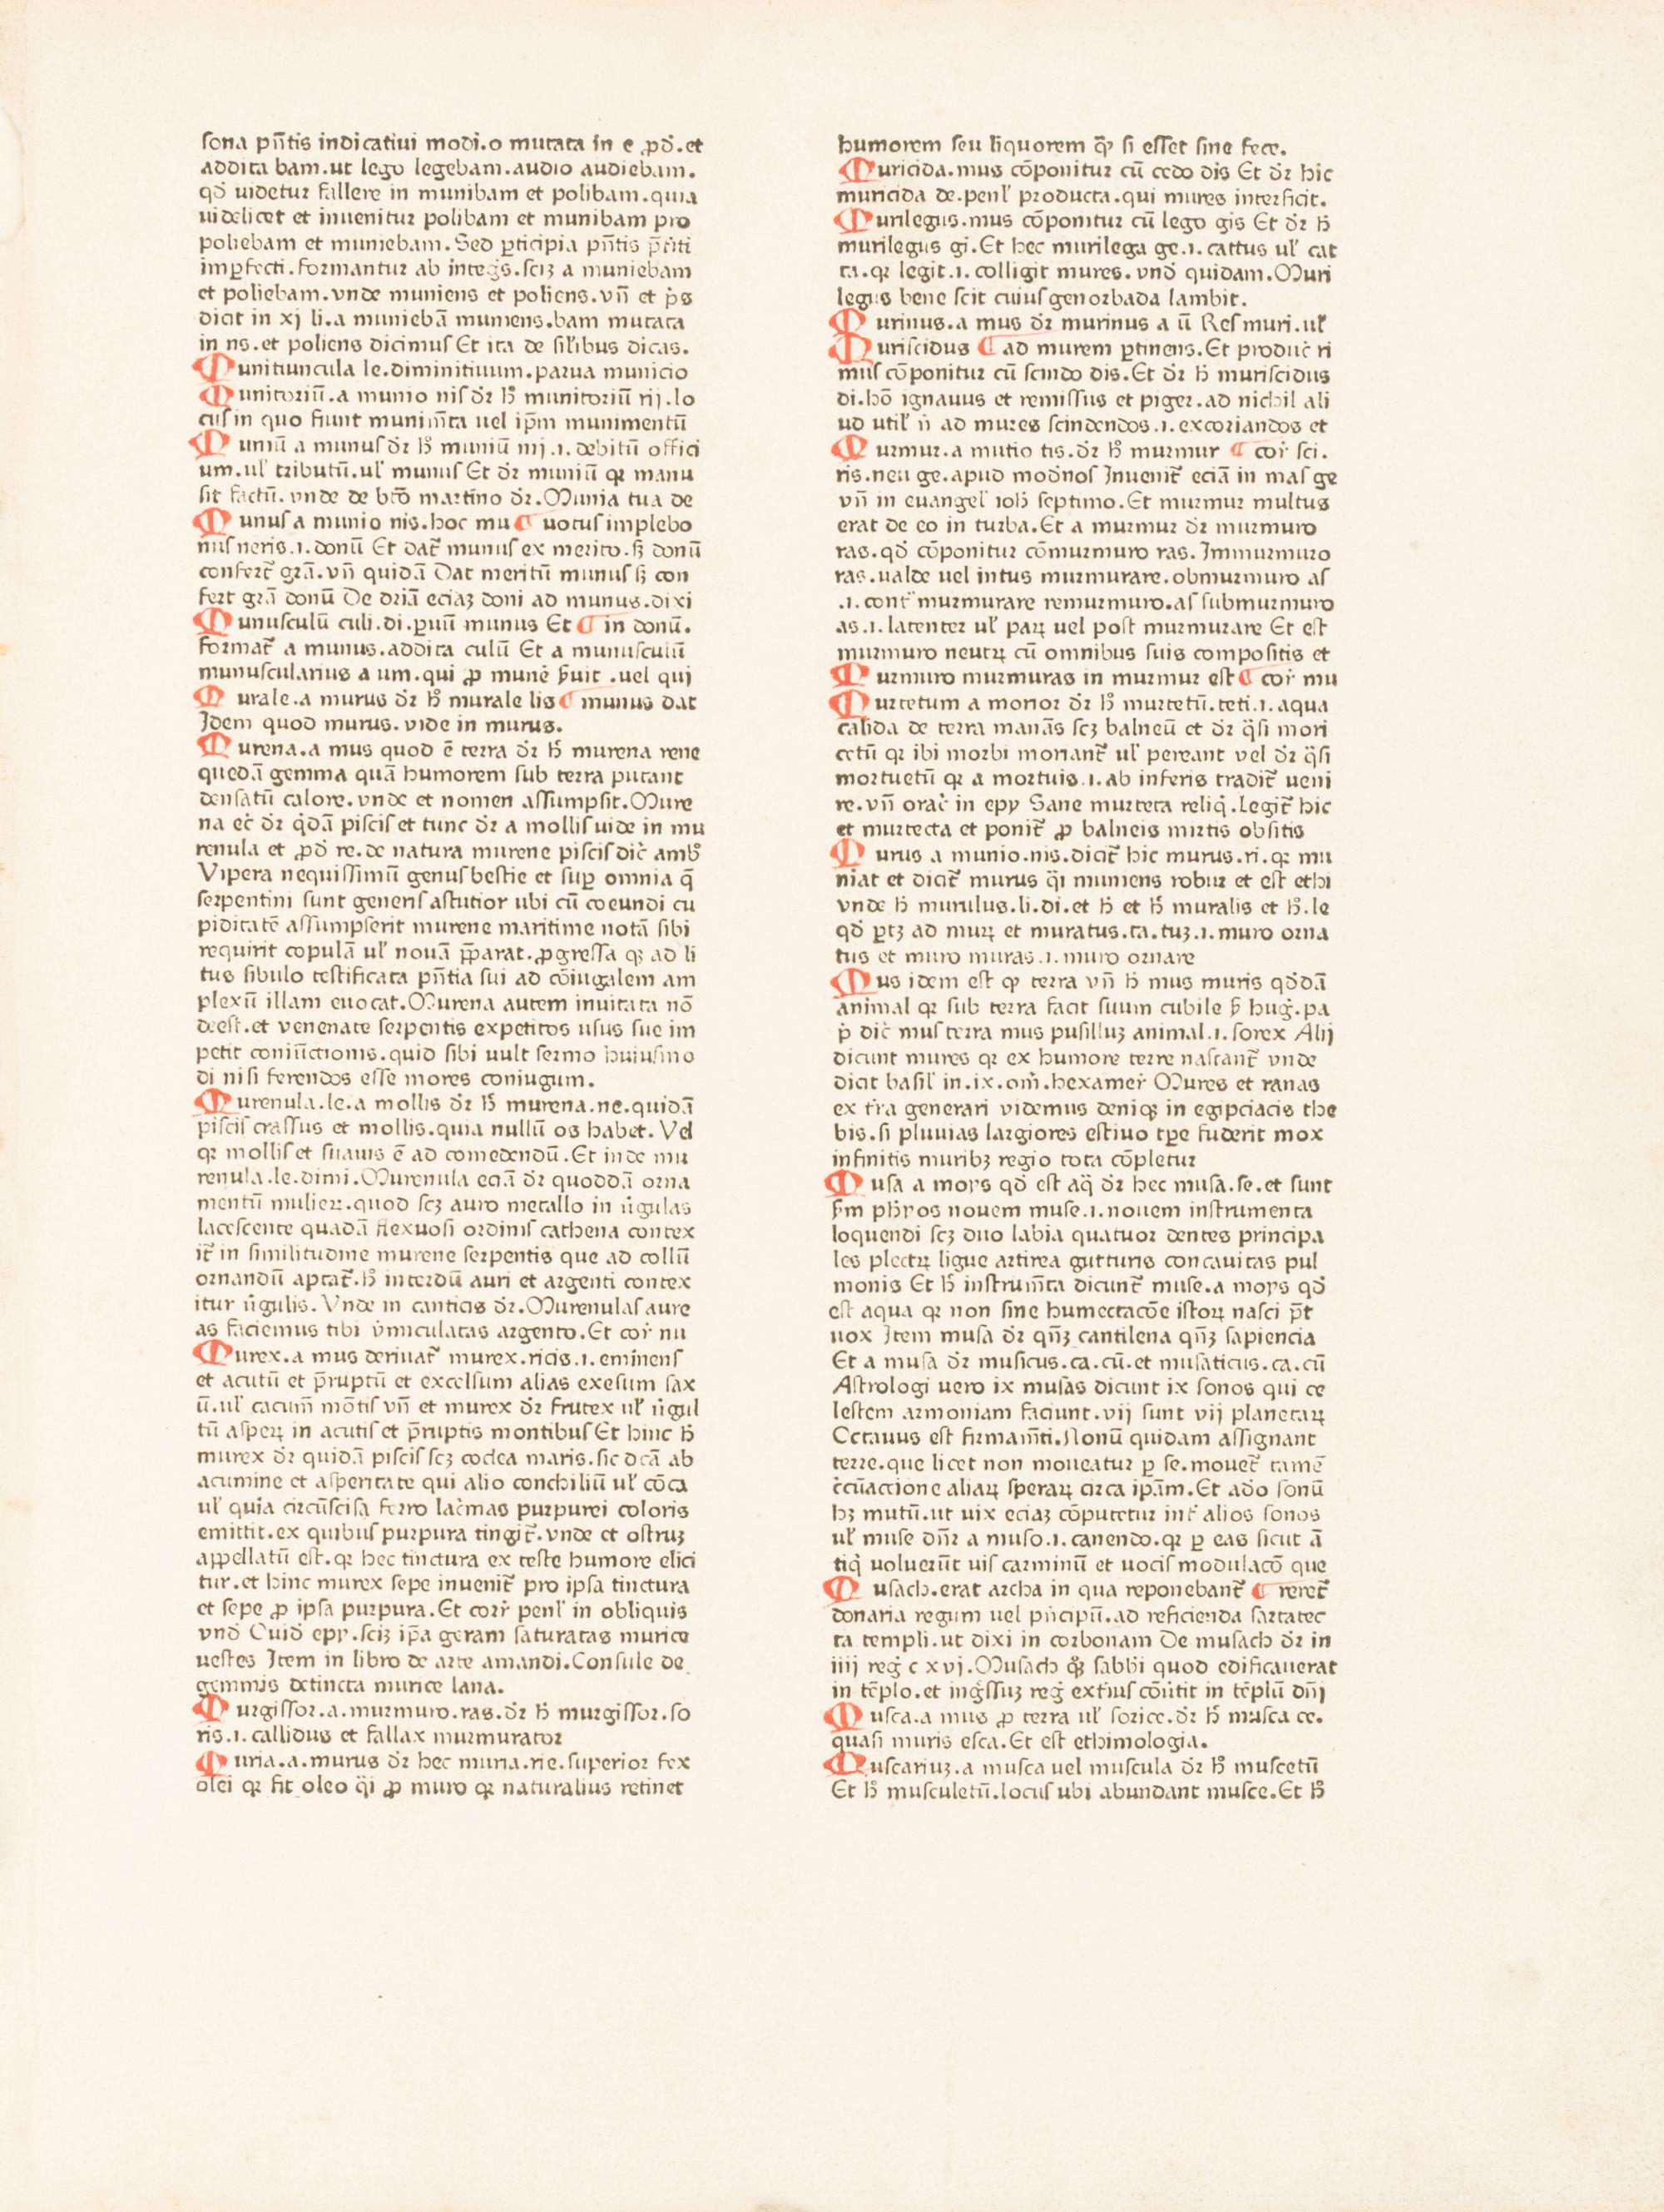 sona pñtis indicatiui modi.o mutata in e ꝓd̕.et
addita bam.ut lego legebam.audio audiebam.
qd̕ uidetur fallere in munibam et polibam.quia
uidelicet et inuenitur polibam et munibam pro
poliebam et muniebam.Sed ꝑticipia pñtis p̄t̕iti
imꝑfecti.formantur ab integ̕s.scꝫ a muniebam
et poliebam.vnde muniens et poliens.vñ et p̕s
dicit in xj li.a muniebā muniens.bam mutata
in ns.et poliens dicimus Et ita de sił̕ibus dicas.
Munitiuncula le.diminitiuum.parua municio
Munitoriū.a munio nis dr̕ h̕ munitoriū rij.lo
cus in quo fiunt munim̄ta uel ip̄m munimentū
Muniū a munus dr̕ h̕ muniū nij.i.debitū offici
um.uł tributū.uł munus Et dr̕ muniū qꝛ manu
sit factū.vnde de btō martino dr̕.Munia tua de
Munus a munio nis.hoc mu ¶ uotus implebo
nus neris.i.donū Et dat̕ munus ex merito.sꝫ donū
confert̕ grā.vñ quidā Dat meritū munus sꝫ con
fert grā donū De dr̄iā eciaꝫ doni ad munus.dixi
Munusculū culi.di.ꝑuū munus Et ¶ in donū.
format̕ a munus.addita culū Et a munusculū
munuscularius a um.qui ꝓ mune̕ s̕uit .uel qui
Murale.a murus dr̕ h̕ murale lis ¶ munus dat
Idem quod murus.vide in murus.
Murena.a mus quod ē terra dr̕ h̕ murena rene
quedā gemma quā humorem sub terra putant
densatū calore.vnde et nomen assumpsit.Mure
na ec̕ dr̕ q̕dā piscis et tunc dr̕ a mollis uide in mu
renula et ꝓd̕ re.de natura murene piscis dic̕ amb̕
Vipera nequissimū genus bestie et suꝑ omnia q̄
serpentini sunt generis astutior ubi cū coeundi cu
piditatē assumpserit murene maritime notā sibi
requirit copulā uł nouā p̄parat.ꝓgressa qꝫ ad li
tus sibulo testificata pñtia sui ad cōiugalem am
plexū illam euocat.Murena autem inuitata nō
deest.et venenate serpentis expetitos usus sue im
petit coniūctionis.quid sibi uult sermo huiusmo
di nisi ferendos esse mores coniugum.
Murenula.le.a mollis dr̕ h̕ murena.ne.quidā
piscis crassus et mollis.quia nullū os habet. Vel
qꝛ mollis et suauis ē ad comedendū.Et inde mu
renula.le.dimi.Murenula eciā dr̕ quoddā orna
mentū mulieꝝ.quod scꝫ auro metallo in u̕gulas
lacescente quadā flexuosi ordinis cathena contex
it̕ in similitudine murene serpentis que ad collū
ornandū aptat̕.h̕ interdū auri et argenti contex
itur u̕gulis. Vnde in canticis dr̕.Murenulas aure
as faciemus tibi v̕miculatas argento.Et cor̕ nu
Murex.a mus deriuat̕ murex.ricis.i.eminens
et acutū et p̄ruptū et excelsum alias exesum sax
ū.uł cacum̄ mōtis vñ et murex dr̕ frutex uł u̕gul
tū asperꝝ in acutis et p̄ruptis montibus Et hinc h̕
murex dr̕ quidā piscis scꝫ coclea maris.sic dcā ab
acumine et asperitate qui alio conchiliū uł cōca
uł quia circūscisa ferro lac̕mas purpurei coloris
emittit.ex quibus purpura tingit̕.vnde et ostruꝫ
appellatū est.qꝛ hec tinctura ex teste humore elici
tur.et hinc murex sepe inuenit̕ pro ipsa tinctura
et sepe ꝓ ipsa purpura.Et corr̕ penł in obliquis
vnd̕ Ouid̕ epy.scꝫ ip̄a geram saturatas murice
uestes Item in libro de arte amandi.Consule de
gemmis detincta murice lana.
Murgissor.a.murmuro.ras.dr̕ h̕ murgissor.so
ris.i.callidus et fallax murmurator
Muria.a.murus dr̕ hec muria.rie.superior fex
olei qꝛ fit oleo q̕i ꝓ muro qꝛ naturalius retinet
humorem seu liquorem qꝫ si esset sine fece.
Muricida.mus cōponitur cū cedo dis Et dr̕ hic
muricida de.penł producta.qui mures interficit.
Murilegus.mus cōponitur cū lego gis Et dr̕ h̕
murilegus gi.Et hec murilega ge.i.cattus uł cat
ta.qꝛ legit.i.colligit mures.vnd̕ quidam.Muri
legus bene scit cuius genorbada lambit.
Murinus.a mus dr̕ murinus a ū Res muri.uł
Muriscidus ¶ ad murem ꝑtinens.Et produc̕ ri
mus cōponitur cū scindo dis.Et dr̕ h̕ muriscidus
di.hō ignauus et remissus et piger.ad nichil ali
ud utił n̕ ad mures scindendos.i.excoriandos et
Murmur.a mutio tis.dr̕ h̕ murmur ¶ cor̕ sci.
ris.neu ge.apud mod̕nos Inuenit̕ eciā in mas ge
vñ in euangeł ioh̕ septimo.Et murmur multus
erat de eo in turba.Et a murmur dr̕ murmuro
ras.qd̕ cōponitur cōmurmuro ras.Immurmuro
ras.ualde uel intus murmurare.obmurmuro as
.i.cont̕ murmurare remurmuro.as submurmuro
as.i.latenter uł paꝝ uel post murmurare Et est
murmuro neutꝝ cū omnibus suis compositis et
Murmuro murmuras in murmur est ¶ cor̕ mu
Murtetum a morior dr̕ h̕ murtetū.teti.i.aqua
calida de terra manās scꝫ balneū et dr̕ q̕si mori
cetū qꝛ ibi morbi moriant̕ uł pereant vel dr̕ q̕si
mortuetū qꝛ a mortuis.i.ab inferis tradit̕ ueni
re.vñ orac̕ in epy Sane murteta reliq̕.Legit̕ hic
et murtecta et ponit̕ ꝓ balneis mirtis obsitis
Murus a munio.nis.dicit̕ hic murus.ri.qꝛ mu
niat et dicit̕ murus q̕i muniens robur et est ethi
vnde h̕ murulus.li.di.et h̕ et h̕ muralis et h̕.le
qd̕ ꝑtꝫ ad muꝝ et muratus.ta.tuꝫ.i.muro orna
tus et muro muras.i.muro ornare
Mus idem est ꝙ terra vñ h̕ mus muris qd̕dā
animal qꝛ sub terra facit suum cubile s̕ hug̕.pa
p̕ dic̕ mus terra mus pusilluꝫ animal.i.sorex Alij
dicunt mures qꝛ ex humore terre nascant̕ vnde
dicit basił in.ix.om̕.hexamer̕ Mures et ranas
ex t̕ra generari videmus deniqꝫ in egipciacis the
bis.si pluuias largiores estiuo tꝑe fuderit mox
infinitis muribꝫ regio tota cōpletur
Musa a moys qd̕ est aq̄ dr̕ hec musa.se.et sunt
s̕m ph̕yos nouem muse.i.nouem instrumenta
loquendi scꝫ duo labia quatuor dentes principa
les plectꝝ ligue artirea gutturis concauitas pul
monis Et h̕ instrum̄ta dicunt̕ muse.a moys qd̕
est aqua qꝛ non sine humectacōe istoꝝ nasci p̄t
uox Item musa dr̕ qñꝫ cantilena qñꝫ sapiencia
Et a musa dr̕ musicus.ca.cū.et musaticus.ca.cū
Astrologi uero ix musas dicunt ix sonos qui ce
lestem armoniam faciunt.vij sunt vij planetaꝝ
Octauus est firmam̄ti.Nonū quidam assignant
terre.que licet non moueatur ꝑ se.mouet̕ tamē
c̕cūaccione aliaꝝ speraꝝ circa ipām.Et ado sonū
hꝫ mutū.ut uix eciaꝫ cōputetur int̕ alios sonos
uł muse dn̄r a muso.i.canendo.qꝛ ꝑ eas sicut ā
tiq̕ uoluerūt uis carminū et uocis modulacō que
Musach.erat archa in qua reponebant̕ ¶ reret̕
donaria regum uel p̕ncipū.ad reficienda sartatec
ta templi.ut dixi in corbonam De musach dr̕ in
iiij reg̕ c xvj.Musach qꝫ sabb̕i quod edificauerat
in tēplo.et ing̕ssuꝫ reg̕ ext̕ius cōu̕tit in tēplū dñj
Musca.a mus ꝓ terra uł sorice.dr̕ h̕ musca ce.
quasi muris esca.Et est ethimologia.
Muscariuꝫ.a musca uel muscula dr̕ h̕ muscetū
Et h̕ musculetū.locus ubi abundant musce.Et h̕